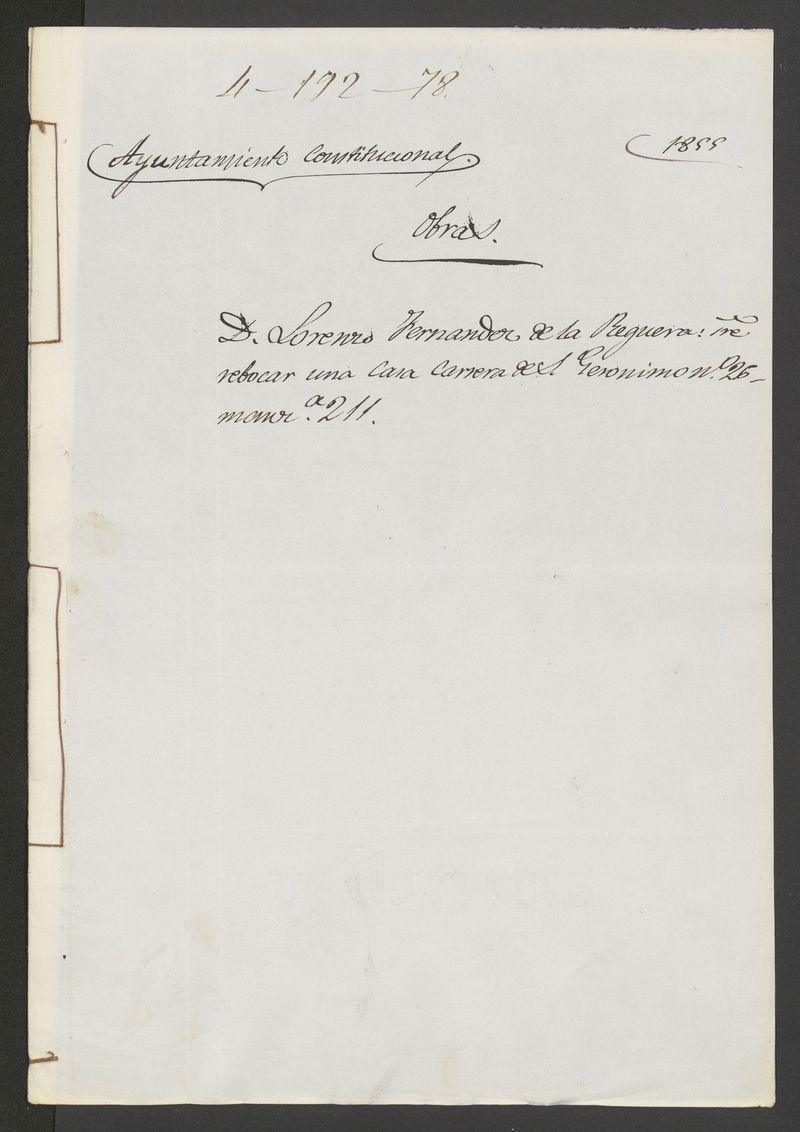 4-192-78
Ayuntamiento Constitucional.
1855
Obras.
D. Lorenzo Fernandez de la Reguera: sre
rebocar una Casa Carrera de S. Geronimo n.º 26-
manz.ª 211.